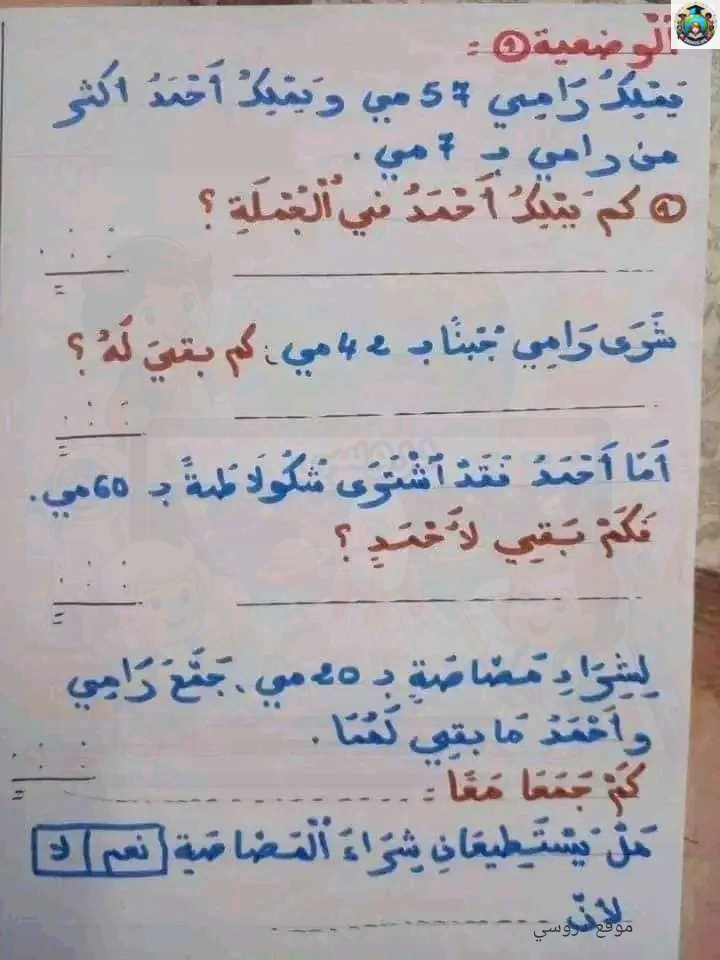 ألْوضعية ① :
يَمْلِكُ رَامِي 57 مي و يَمْلِكُ أَحْمَدُ أكثر
من رامي بـ 7 مي .
① كم يَمْلِكُ أَحْمَدُ في الْجُمْلَةِ ؟
شَرَى رَامِي جُبْنًا بـ 42 مي . كم بقيَ لَهُ ؟
أَمَّا أَحْمَدُ فَقَدْ اشْتَرَى شُكُولَاطَةً بـ 60 مي .
فَكَمْ بَقِيَ لأَحْمَدٍ ؟
لِشِرَاءِ مَصَّاصَةٍ بـ 20 مي . جَمَّعَ رَامِي
و أَحْمَدُ مَا بقِي لَهُمَا .
كَمْ جَمَعَا مَعًا :
هَلْ يَسْتَطِيعَانِ شِرَاءَ الْمَصَّاصَةِ نعم لا
لأنّ
موقع دروسي